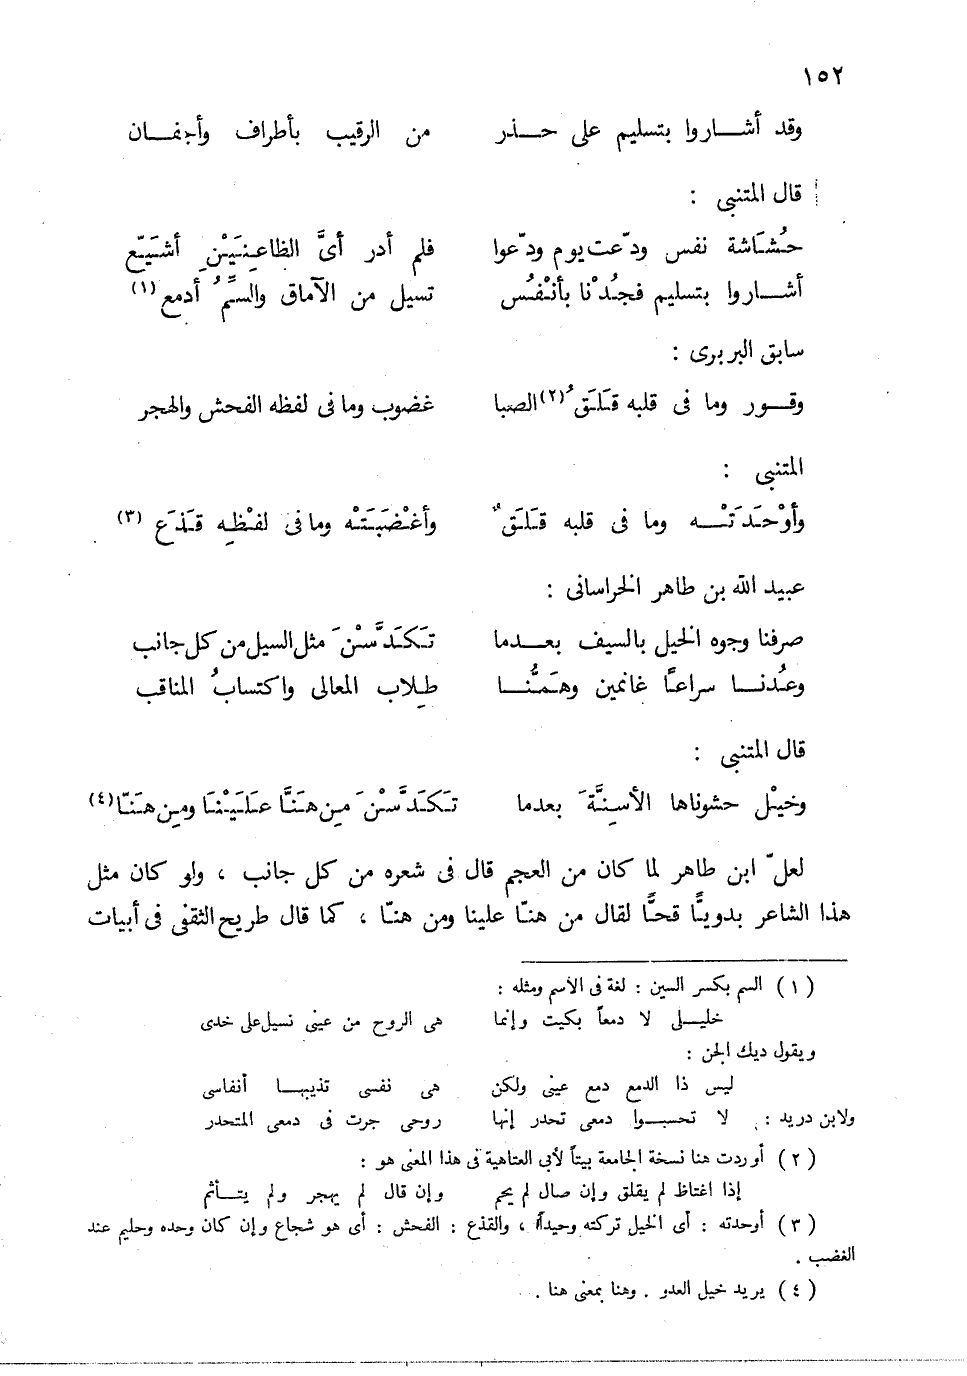 ١٥٢
وقد أشـــاروا بتسليم على حـــذر من الرقيب بأطراف وأجفـــان
قال المتنبى :
حُشَاشة نفس ودّعت يوم ودّعوا فلم أدر أىَّ الظاعِنَيْنِ أشَيّع
أشـــاروا بتسليم فجُدْنا بأنْفُس تسيل من الآماق والسِّمُ أدمع (١)
سابق البربرى :
وقـــور وما فى قلبه قَلَقُ (٢) الصبا غضوب وما فى لفظه الفحش والهجر
المتنبى :
وأوْحَدَتْـــه وما فى قلبه قَلَقٌ وأغْضَبَتْه وما فى لفْظِه قَذَع (٣)
عبيد الله بن طاهر الخراسانى :
صرفنا وجوه الخيل بالسيف بعـــدما تَكَدَّسْنَ مثل السيل من كل جانب
وعُدنـــا سراعاً غانمين وهَمُّنـــا طِلاب المعالى واكتسابُ المناقب
قال المتنبى :
وخيْل حشوناها الأسِنَّةَ بعدما تَكَدَّسْنَ مِن هَنَّا عَلَيْنَا ومِن هَنّا (٤)
لعلّ ابن طاهر لما كان من العجم قال فى شعره من كل جانب ، ولو كان مثل
هذا الشاعر بدويًّا قحًّا لقال من هنّا علينا ومن هنّا ، كما قال طريح الثقفى فى أبيات
(١) السم بكسر السين : لغة فى الاسم ومثله :
خليـــلى لا دمعاً بكيت وإنما هى الروح من عينى تسيل على خدى
ويقول ديك الجن :
ليس ذا الدمع دمع عينى ولكن هى نفسى تذيبهـــا أنفاسى
ولابن دريد : لا تحسبـــوا دمعى تحدر إنها روحى جرت فى دمعى المتحدر
(٢) أوردت هنا نسخة الجامعة بيتاً لأبى العتاهية فى هذا المعنى هو :
إذا اغتاظ لم يقلق وإن صال لم يحم وإن قال لم يهجر ولم يتـــأثم
(٣) أوحدته : أى الخيل تركته وحيداً ، والقذع : الفحش : أى هو شجاع وإن كان وحده وحليم عند
الغضب .
(٤) يريد خيل العدو . وهنا بمعنى هنا .